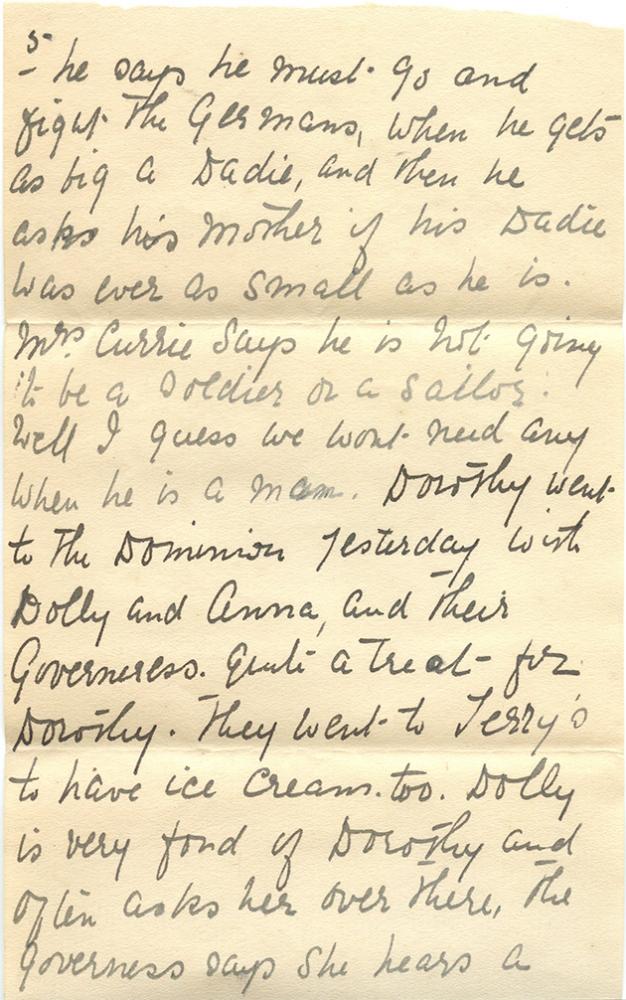 5
- he says he must go and
fight the Germans, when he gets
as big a Dadie, and then he
asks his Mother if his Dadie
was ever as small as he is.
Mrs. Currie says he is not going
to be a soldier or a sailor.
Well I guess we wont need any
when he is a man. Dorothy went
to the Dominion yesterday with
Dolly and Anna, and their
Governeress. quite a treat for
Dorothy. They went to Terry's
to have ice cream. too. Dolly
is very fond of Dorothy and
often asks her over there, the
governess says she hears a